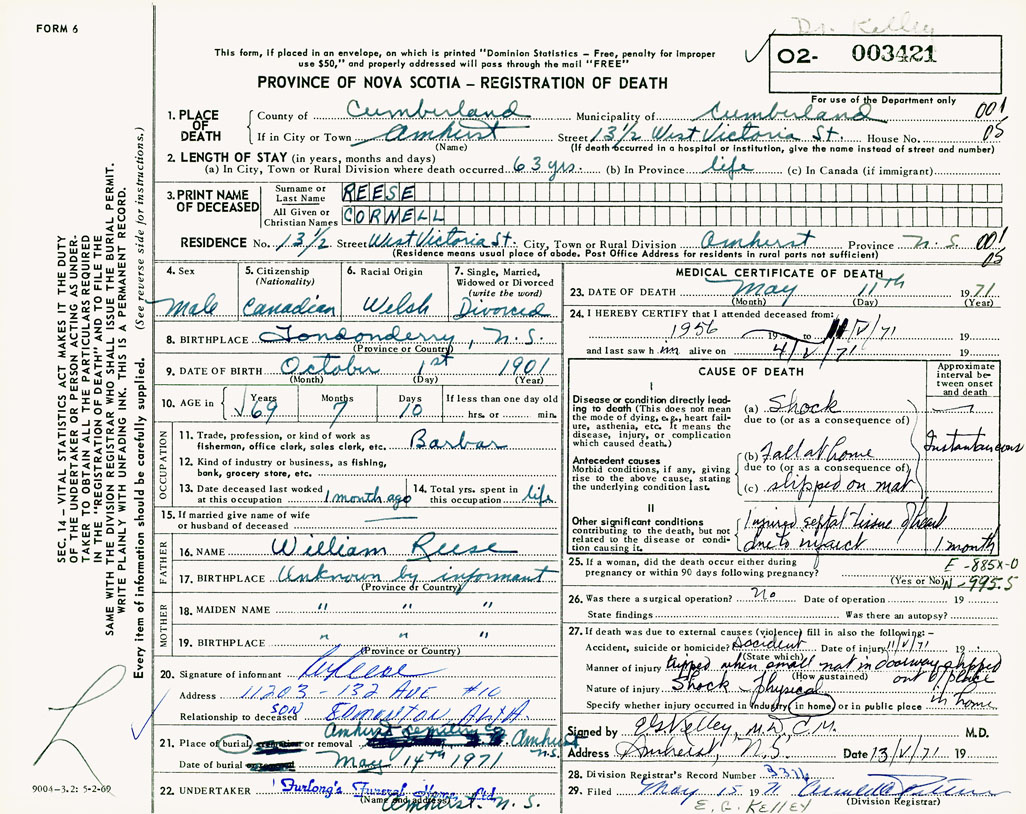 FORM 6
Dr. Kelley
This form, if placed in an envelope, on which is printed "Dominion Statistics – Free, penalty for improper
use $50," and properly addressed will pass through the mail "FREE"
O2- 003421
PROVINCE OF NOVA SCOTIA – REGISTRATION OF DEATH
For use of the Department only
1. PLACE OF DEATH
County of Cumberland Municipality of Cumberland 001
If in City or Town Amhurst Street 13½ West Victoria St. House No. 05
(Name) (If death occurred in a hospital or institution, give the name instead of street and number)
2. LENGTH OF STAY (in years, months and days)
(a) In City, Town or Rural Division where death occurred 63 yrs. (b) In Province life (c) In Canada (if immigrant)
3. PRINT NAME OF DECEASED
Surname or Last Name REESE
All Given or Christian Names CORNELL
RESIDENCE No. 13½ Street West Victoria St. City, Town or Rural Division Amhurst Province N.S. 001
(Residence means usual place of abode. Post Office Address for residents in rural parts not sufficient) 05
4. Sex
Male
5. Citizenship
(Nationality)
Canadian
6. Racial Origin
Welsh
7. Single, Married,
Widowed or Divorced
(write the word)
Divorced
8. BIRTHPLACE Londonderry, N.S.
(Province or Country)
9. DATE OF BIRTH October 1st 1901
(Month) (Day) (Year)
10. AGE in
Years Months Days If less than one day old
69 7 10 hrs. or min.
OCCUPATION
11. Trade, profession, or kind of work as
fisherman, office clerk, sales clerk, etc. Barbar
12. Kind of industry or business, as fishing,
bank, grocery store, etc.
13. Date deceased last worked
at this occupation 1 month ago
14. Total yrs. spent in
this occupation life
15. If married give name of wife
or husband of deceased
FATHER
16. NAME William Reese
17. BIRTHPLACE Unknown by informant
(Province or Country)
MOTHER
18. MAIDEN NAME " " "
19. BIRTHPLACE " " "
(Province or Country)
20. Signature of informant
Address 11203 - 132 AVE #10
Relationship to deceased SON EDMONTON ALTA.
21. Place of burial, or removal Amhurst N.S.
Date of burial May 14th 1971
22. UNDERTAKER Furlong's Funeral Home Ltd.
(Name and address) Amhurst. N.S.
MEDICAL CERTIFICATE OF DEATH
23. DATE OF DEATH May 11th 1971
(Month) (Day) (Year)
24. I HEREBY CERTIFY that I attended deceased from:
1956 19 to 11/V/71
and last saw him alive on 4/V/71 19
CAUSE OF DEATH
Approximate
interval be-
tween onset
and death
I
Disease or condition directly lead-
ing to death (This does not mean
the mode of dying, e.g., heart fail-
ure, asthenia, etc. It means the
disease, injury, or complication
which caused death.)
(a) Shock
due to (or as a consequence of)
Antecedent causes
Morbid conditions, if any, giving
rise to the above cause, stating
the underlying condition last.
(b) Fall at home
due to (or as a consequence of)
(c) slipped on mat
Instantaneous
II
Other significant conditions
contributing to the death, but not
related to the disease or condi-
tion causing it.
Injured septal tissue of heart
due to infarct 1 month
25. If a woman, did the death occur either during
pregnancy or within 90 days following pregnancy?
(Yes or No)
E-885X-0
N-995.5
26. Was there a surgical operation? No Date of operation 19
State findings Was there an autopsy?
27. If death was due to external causes (violence) fill in also the following:–
Accident, suicide or homicide? Accident Date of injury 11/V/71 19
(State which)
Manner of injury tripped when small mat in doorway slipped
(How sustained) out of place
Nature of injury Shock - Physical
Specify whether injury occurred in industry, in home, or in public place in home
Signed by E.G. Kelley, M.D., C.M. M.D.
Address Amherst, N.S. Date 13/V/71 19
28. Division Registrar's Record Number
29. Filed May 15 1971
(Division Registrar)
E. G. KELLEY
SEC. 14 – VITAL STATISTICS ACT MAKES IT THE DUTY
OF THE UNDERTAKER OR PERSON ACTING AS UNDER-
TAKER TO OBTAIN ALL THE PARTICULARS REQUIRED
IN THE "REGISTRATION OF DEATH" AND TO FILE THE
SAME WITH THE DIVISION REGISTRAR WHO SHALL ISSUE THE BURIAL PERMIT.
WRITE PLAINLY WITH UNFADING INK, THIS IS A PERMANENT RECORD.
Every item of information should be carefully supplied. (See reverse side for instructions.)
9004-3.2: 5-2-69